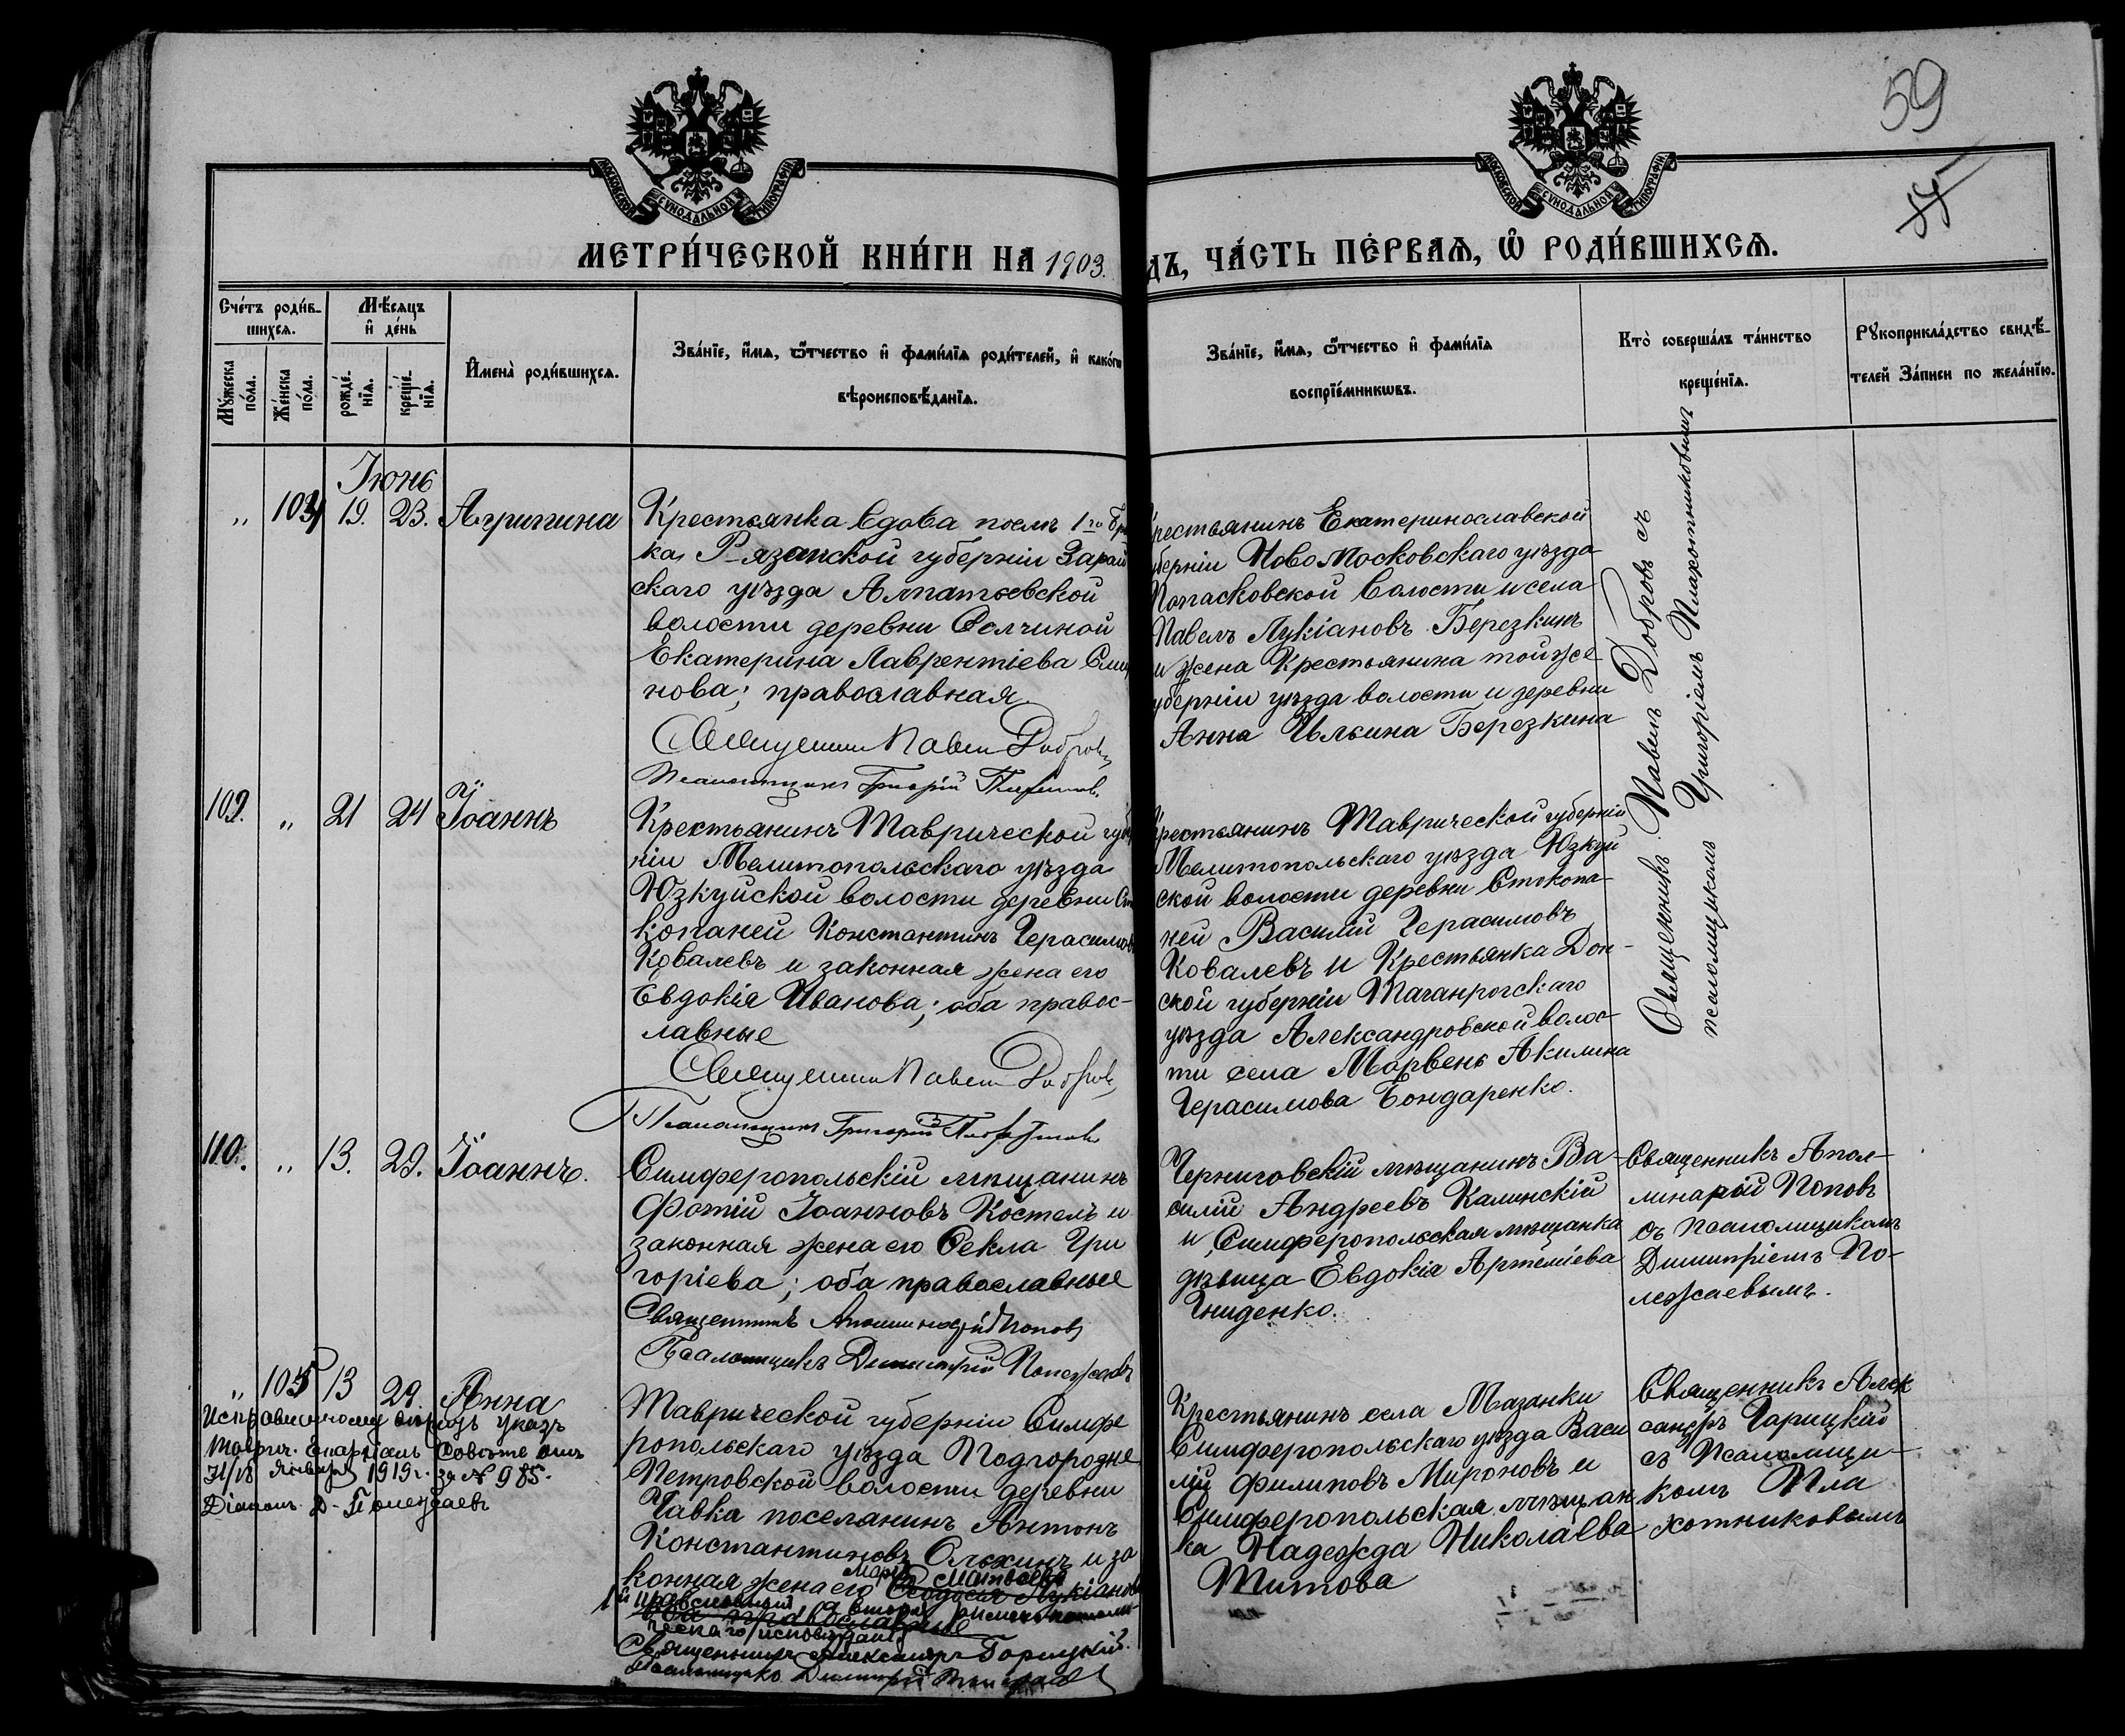 59
МОСКОВСКОЙ СѴНОДАЛЬНОЙ ТИПОГРАФІИ
МОСКОВСКОЙ СѴНОДАЛЬНОЙ ТИПОГРАФІИ
МЕТРИ́ЧЕСКОЙ КНИ́ГИ НА 1903.
ДЪ, ЧА́СТЬ ПЕ́РВАѦ, Ѡ҆ РОДИ́ВШИХСѦ.
Сче́тъ роди́в-
шихсѧ.
Мꙋ́жеска по́ла.
Же́нска по́ла.
Мѣ́сяцъ
и҆ де́нь
рожде́-
нїѧ.
креще́-
нїѧ.
И҆мена̀ роди́вшихсѧ.
Зва́нїе, и҆́мѧ, ѻ҆́тчество и҆ фами́лїѧ роди́телей, и҆ како́гѡ
вѣроисповѣ́данїѧ.
Зва́нїе, и҆́мѧ, ѻ҆́тчество и҆ фами́лїѧ
воспрїе́мникѡвъ.
Кто̀ соверша́лъ та́инство
креще́нїѧ.
Рꙋкоприкла́дство свидѣ́-
телей за́писи по жела́нїю.
Іюнь
" 104 19. 23. Агрипина
Крестьянка вдова послѣ 1го бра
ка, Рязанской губерніи Зарай
скаго уѣзда Алпатьевской
волости деревни Солчиной
Екатерина Лаврентіева Смир
нова; православная
Священникъ Павелъ Добровъ
Псаломщикъ Григорій
рестьянинъ Екатеринославской
уберніи Ново Московскаго уѣзда
Попасковской волости и села
Павелъ Лукіановъ Березкинъ
и жена Крестьянина той же
уберніи уѣзда волости и деревни
Анна Ильина Березкина
Священникъ Павелъ Добровъ съ
псаломщикомъ Григоріемъ Плахотниковымъ
109. " 21 24 Іоаннъ
Крестьянинъ Таврической губер
ніи Мелитопольскаго уѣзда
Юзкуйской волости деревни Сто
копаней Константинъ Герасимовъ
Ковалевъ и законная жена его
Евдокія Иванова; оба правос-
лавные
Священникъ Павелъ Добровъ
Псаломщикъ Григорій
рестьянинъ Таврической губерніи
Мелитопольскаго уѣзда Юзкуй
ской волости деревни Стокопа-
ней Василій Герасимовъ
Ковалевъ и Крестьянка Дон-
ской губерніи Таганрогскаго
уѣзда Александровской волос-
ти села Марвень Акилина
Герасимова Бондаренко.
110. " 13. 29. Іоаннъ.
Симферопольскій мѣщанинъ
Фотій Іоанновъ Костель и
законная жена его Ѳекла Гри
горіева; оба православные
Священникъ Аполлинарій Поповъ
Псаломщикъ Димитрій Полежаевъ
Черниговскій мѣщанинъ Ва-
силій Андреевъ Калинскій
и Симферопольская мѣщанка
дѣвица Евдокія Артеміева
Гниденко.
Священникъ Апол-
линарій Поповъ
съ псаломщикомъ
Димитріемъ По-
лежаевымъ.
" 105 13 29. Анна
Таврич. Епархіал. Совѣта отъ
31/18 января 1919 г. за № 985.
Діаконъ Д. Полежаевъ
Таврической губерніи Симфе
ропольскаго уѣзда Подгородне
Петровской волости деревни
Чавка поселянинъ Антонъ
Константиновъ Олькинъ и за
конная жена его Ѳеодосія Лукіанова
Марія Матвеева
оба православные
1й православный а вторая римско католи-
ческаго исповѣданія
Священникъ Александръ Гарицкій.
Псаломщикъ Димитрій Полежаевъ
Крестьянинъ села Мазанки
Симферопольскаго уѣзда Васи
лій Филиповъ Мироновъ и
Симферопольская мѣщан
ка Надежда Николаева
Титова
Священникъ Алек
сандръ Гарицкій
съ Псаломщи-
комъ Пла
хотниковымъ